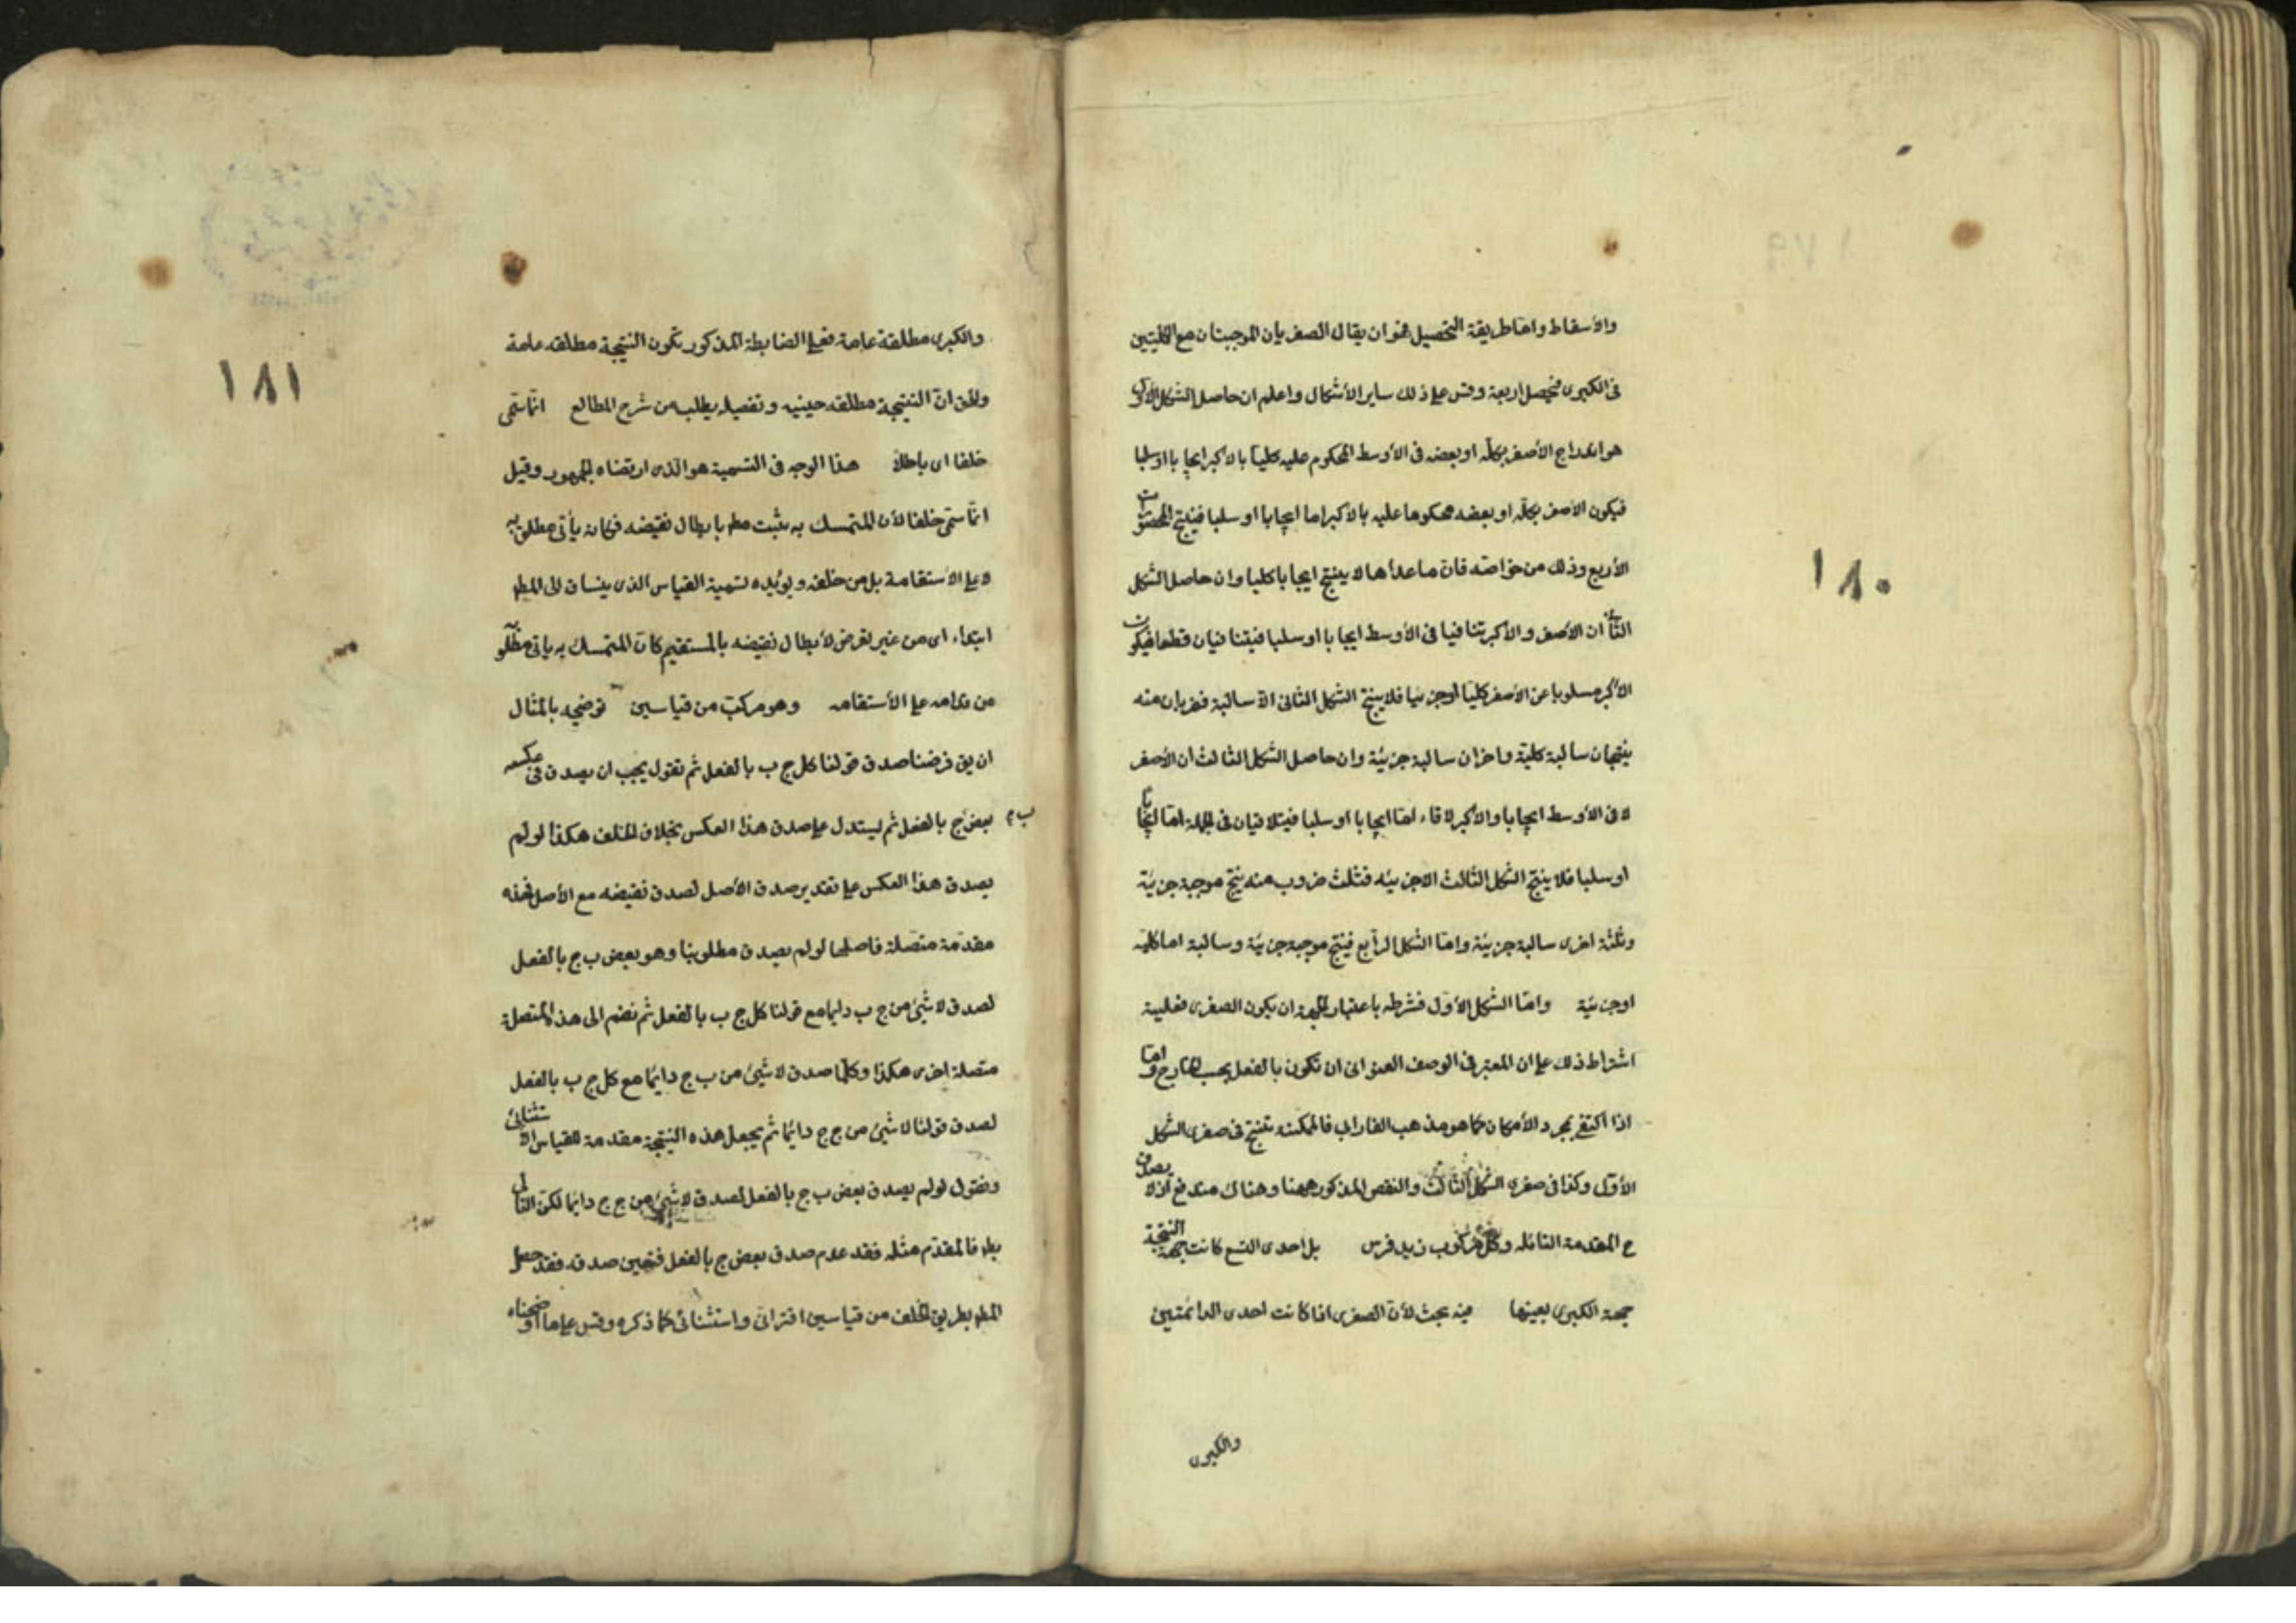 ١٨٠
والأسقاط واما طريقة التحصيل فهو ان يقال الصغريان الموجبتان مع الكليتين
فى الكبرى فيحصل اربعة وقس على ذلك ساير الأشكال واعلم ان حاصل الشكل الأول
هو اندراج الأصغر بكله او بعضه فى الأوسط المحكوم عليه كليا بالاكبر ايجابا او سلبا
فيكون الأصغر بكله او بعضه محكوما عليه بالاكبر اما ايجابا او سلبا فينتج المحصورات
الأربع وذلك من خواصه فان ما عداها لا ينتج ايجابا كليا وان حاصل الشكل
الثانى ان الأصغر والأكبر تنافيا فى الأوسط ايجابا او سلبا فيتنافيان قطعا فيكون
الاكبر مسلوبا عن الأصغر كليا او جزئيا فلا ينتج الشكل الثانى الا سالبة فضربان منه
ينتجان سالبة كلية واخران سالبة جزئية وان حاصل الشكل الثالث ان الأصغر
لاقى الأوسط ايجابا والاكبر لاقاه اما ايجابا او سلبا فيتلاقيان فى الجملة اما ايجابا
او سلبا فلا ينتج الشكل الثالث الا جزئيه فثلث ضروب منه ينتج موجبة جزئية
وثلثة اخرى سالبة جزئية واما الشكل الرابع فينتج موجبة جزئية وسالبة اما كلية
او جزئية واما الشكل الأول فشرطه باعتبار الجهة ان يكون الصغرى فعلية
اشتراط ذلك على ان المعتبر فى الوصف العنوانى ان تكون بالفعل بحسب الخارج واما
اذا اكتفى بمجرد الأمكان كما هو مذهب الفارابى فالممكنة تنتج فى صغرى الشكل
الأول وكذا فى صغرى الشكل الثالث والنقض المذكور ههنا وهناك مندفع اذ لا يصدق
ح المقدمة القائله وكل مركوب زيد فرس بل احدى التسع كانت جهة النتيجة
جهة الكبرى بعينها فيه بحث لأن الصغرى اذا كانت احدى الدائمتين
والكبرى
١٨١
والكبرى مطلقة عامة فعلى الضابطة المذكور تكون النتيجة مطلقه عامة
والحق ان النتيجة مطلقه حينيه وتفصيله يطلب من شرح المطالع انما سمى
خلفا اى باطلا هذا الوجه فى التسمية هو الذى ارتضاه الجمهور وقيل
انما سمى خلفا لأن المتمسك به يثبت مطه بابطال نقيضه فكانه يأتى مطلوبه
لا على الأستقامة بل من خلفه ويؤيده تسمية القياس الذى ينساق الى المطه
ابتداء اى من غير تعرض لأبطال نقيضه بالمستقيم كان المتمسك به ياتى مطلوبه
من قدامه على الأستقامه وهو مركب من قياسين توضيحه بالمثال
ان يق فرضنا صدق قولنا كل ج ب بالفعل ثم نقول يجب ان يصدق فى عكسه
بعض ب ج بالفعل ثم ليستدل على صدق هذا العكس بخلاف الخلف هكذا لو لم
يصدق هذا العكس على تقدير صدق الأصل لصدق نقيضه مع الأصل فهذه
مقدمة متصلة فاصلها لو لم يصدق مطلوبنا وهو بعض ب ج بالفعل
لصدق لا شئ من ج ب دايما مع قولنا كل ج ب بالفعل ثم نضم الى هذه المتصلة
متصلة اخرى هكذا وكلما صدق لا شئ من ب ج دائما مع كل ج ب بالفعل
لصدق قولنا لا شئ من ج ج دائما ثم يجعل هذه النتيجة مقدمة للقياس الاستثنائى
ونقول لو لم يصدق بعض ب ج بالفعل لصدق لا شئ من ج ج دايما لكن التالى
بطه فالمقدم مثله فقد عدم صدق بعض ج بالفعل فتعين صدقه فقد حصل
المطه بطريق الخلف من قياسين اقترانى واستثنائى كما ذكره وقس على ما اوضحناه